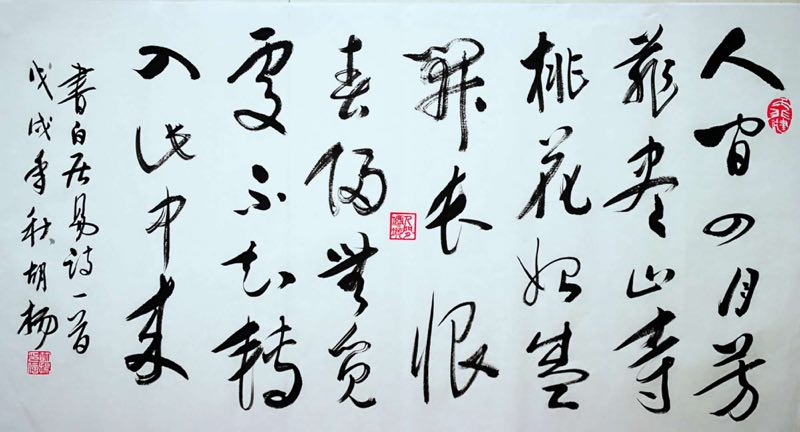 人间四月芳
菲尽山寺
桃花始盛
開长恨
春归無覓
處不知轉
入此中来
書白居易诗一首
戊戌年秋 胡杨